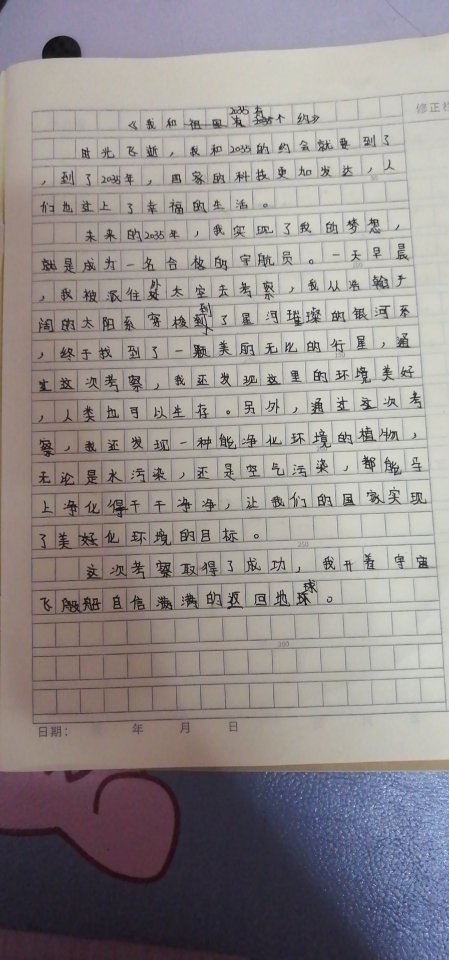 修正栏
《我和2035有个约》
时光飞逝，我和2035的约会就要到了
，到了2035年，国家的科技更加发达，人
们也过上了幸福的生活。
未来的2035年，我实现了我的梦想，
就是成为一名合格的宇航员。一天早晨
，我被派往外太空去考察，我从浩瀚广
阔的太阳系穿梭到了星河璀璨的银河系
，终于找到了一颗美丽无比的行星，通
过这次考察，我还发现这里的环境美好
，人类也可以生存。另外，通过这次考
察，我还发现一种能净化环境的植物，
无论是水污染，还是空气污染，都能马
上净化得干干净净，让我们的国家实现
了美好化环境的目标。
这次考察取得了成功，我开着宇宙
飞船自信满满的返回地球。
300
日期： 年 月 日